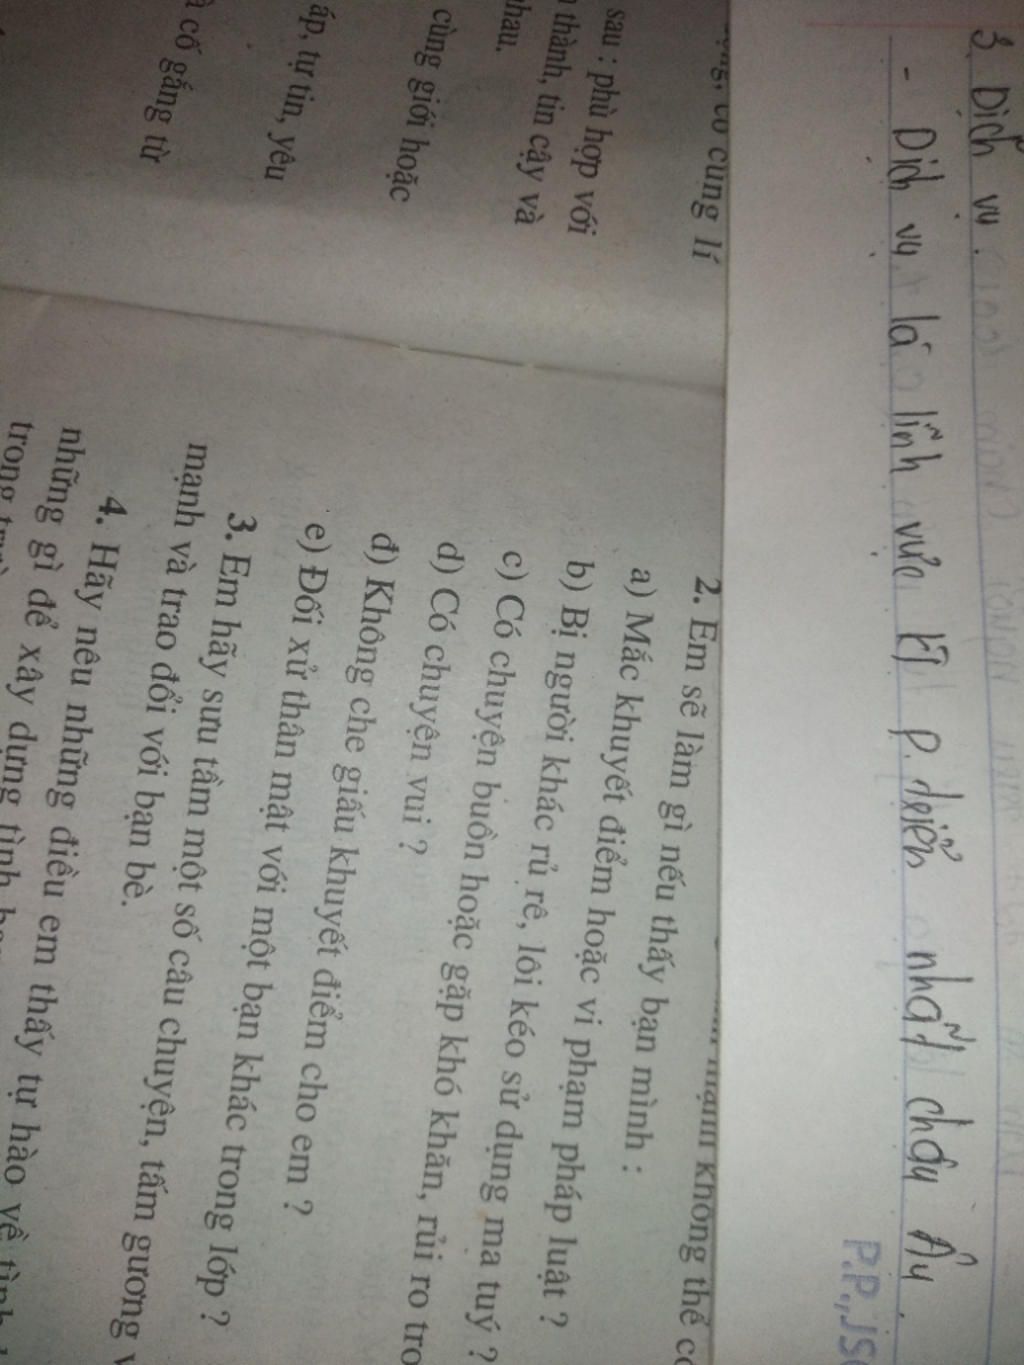 3. Dịch vụ.
- Dịch vụ là lĩnh vực kT p. triển nhất châu Âu.
cùng lí
sau : phù hợp với
thành, tin cậy và
nhau.
cùng giới hoặc
ấp, tự tin, yêu
cố gắng từ
không thể
2. Em sẽ làm gì nếu thấy bạn mình :
a) Mắc khuyết điểm hoặc vi phạm pháp luật ?
b) Bị người khác rủ rê, lôi kéo sử dụng ma tuý ?
c) Có chuyện buồn hoặc gặp khó khăn, rủi ro tro
d) Có chuyện vui ?
đ) Không che giấu khuyết điểm cho em ?
e) Đối xử thân mật với một bạn khác trong lớp ?
3. Em hãy sưu tầm một số câu chuyện, tấm gương v
mạnh và trao đổi với bạn bè.
4. Hãy nêu những điều em thấy tự hào về tình
những gì để xây dựng tình
trong